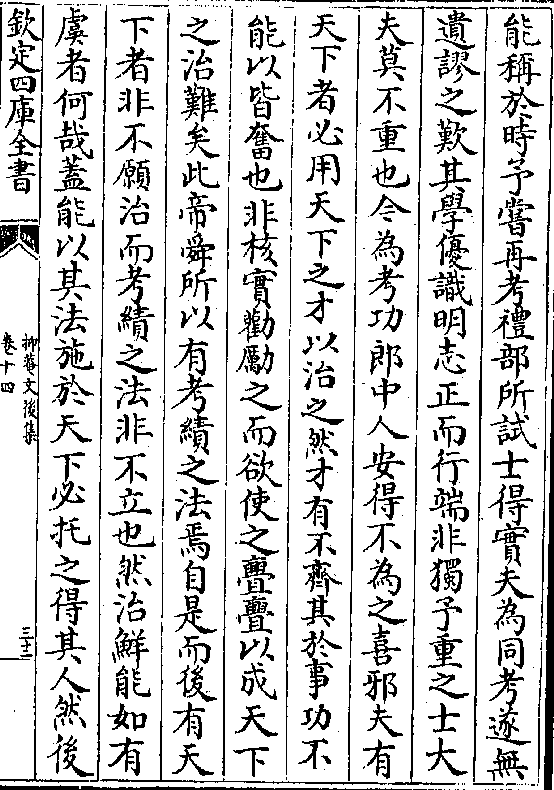 能稱於時予嘗再考禮部所試士得實夫為同考遂無
遺謬之歎其學優識明志正而行端非獨予重之士大
夫莫不重也今為考功郎中人安得不為之喜邪夫有
天下者必用天下之才以治之然才有不齊其於事功不
能以皆奮也非核實勸勵之而欲使之亹亹以成天下
之治難矣此帝舜所以有考績之法焉自是而後有天
下者非不願治而考績之法非不立也然治鮮能如有
虞者何哉蓋能以其法施於天下必托之得其人然後
欽定四庫全書
抑菴文後集
卷十四
三十二